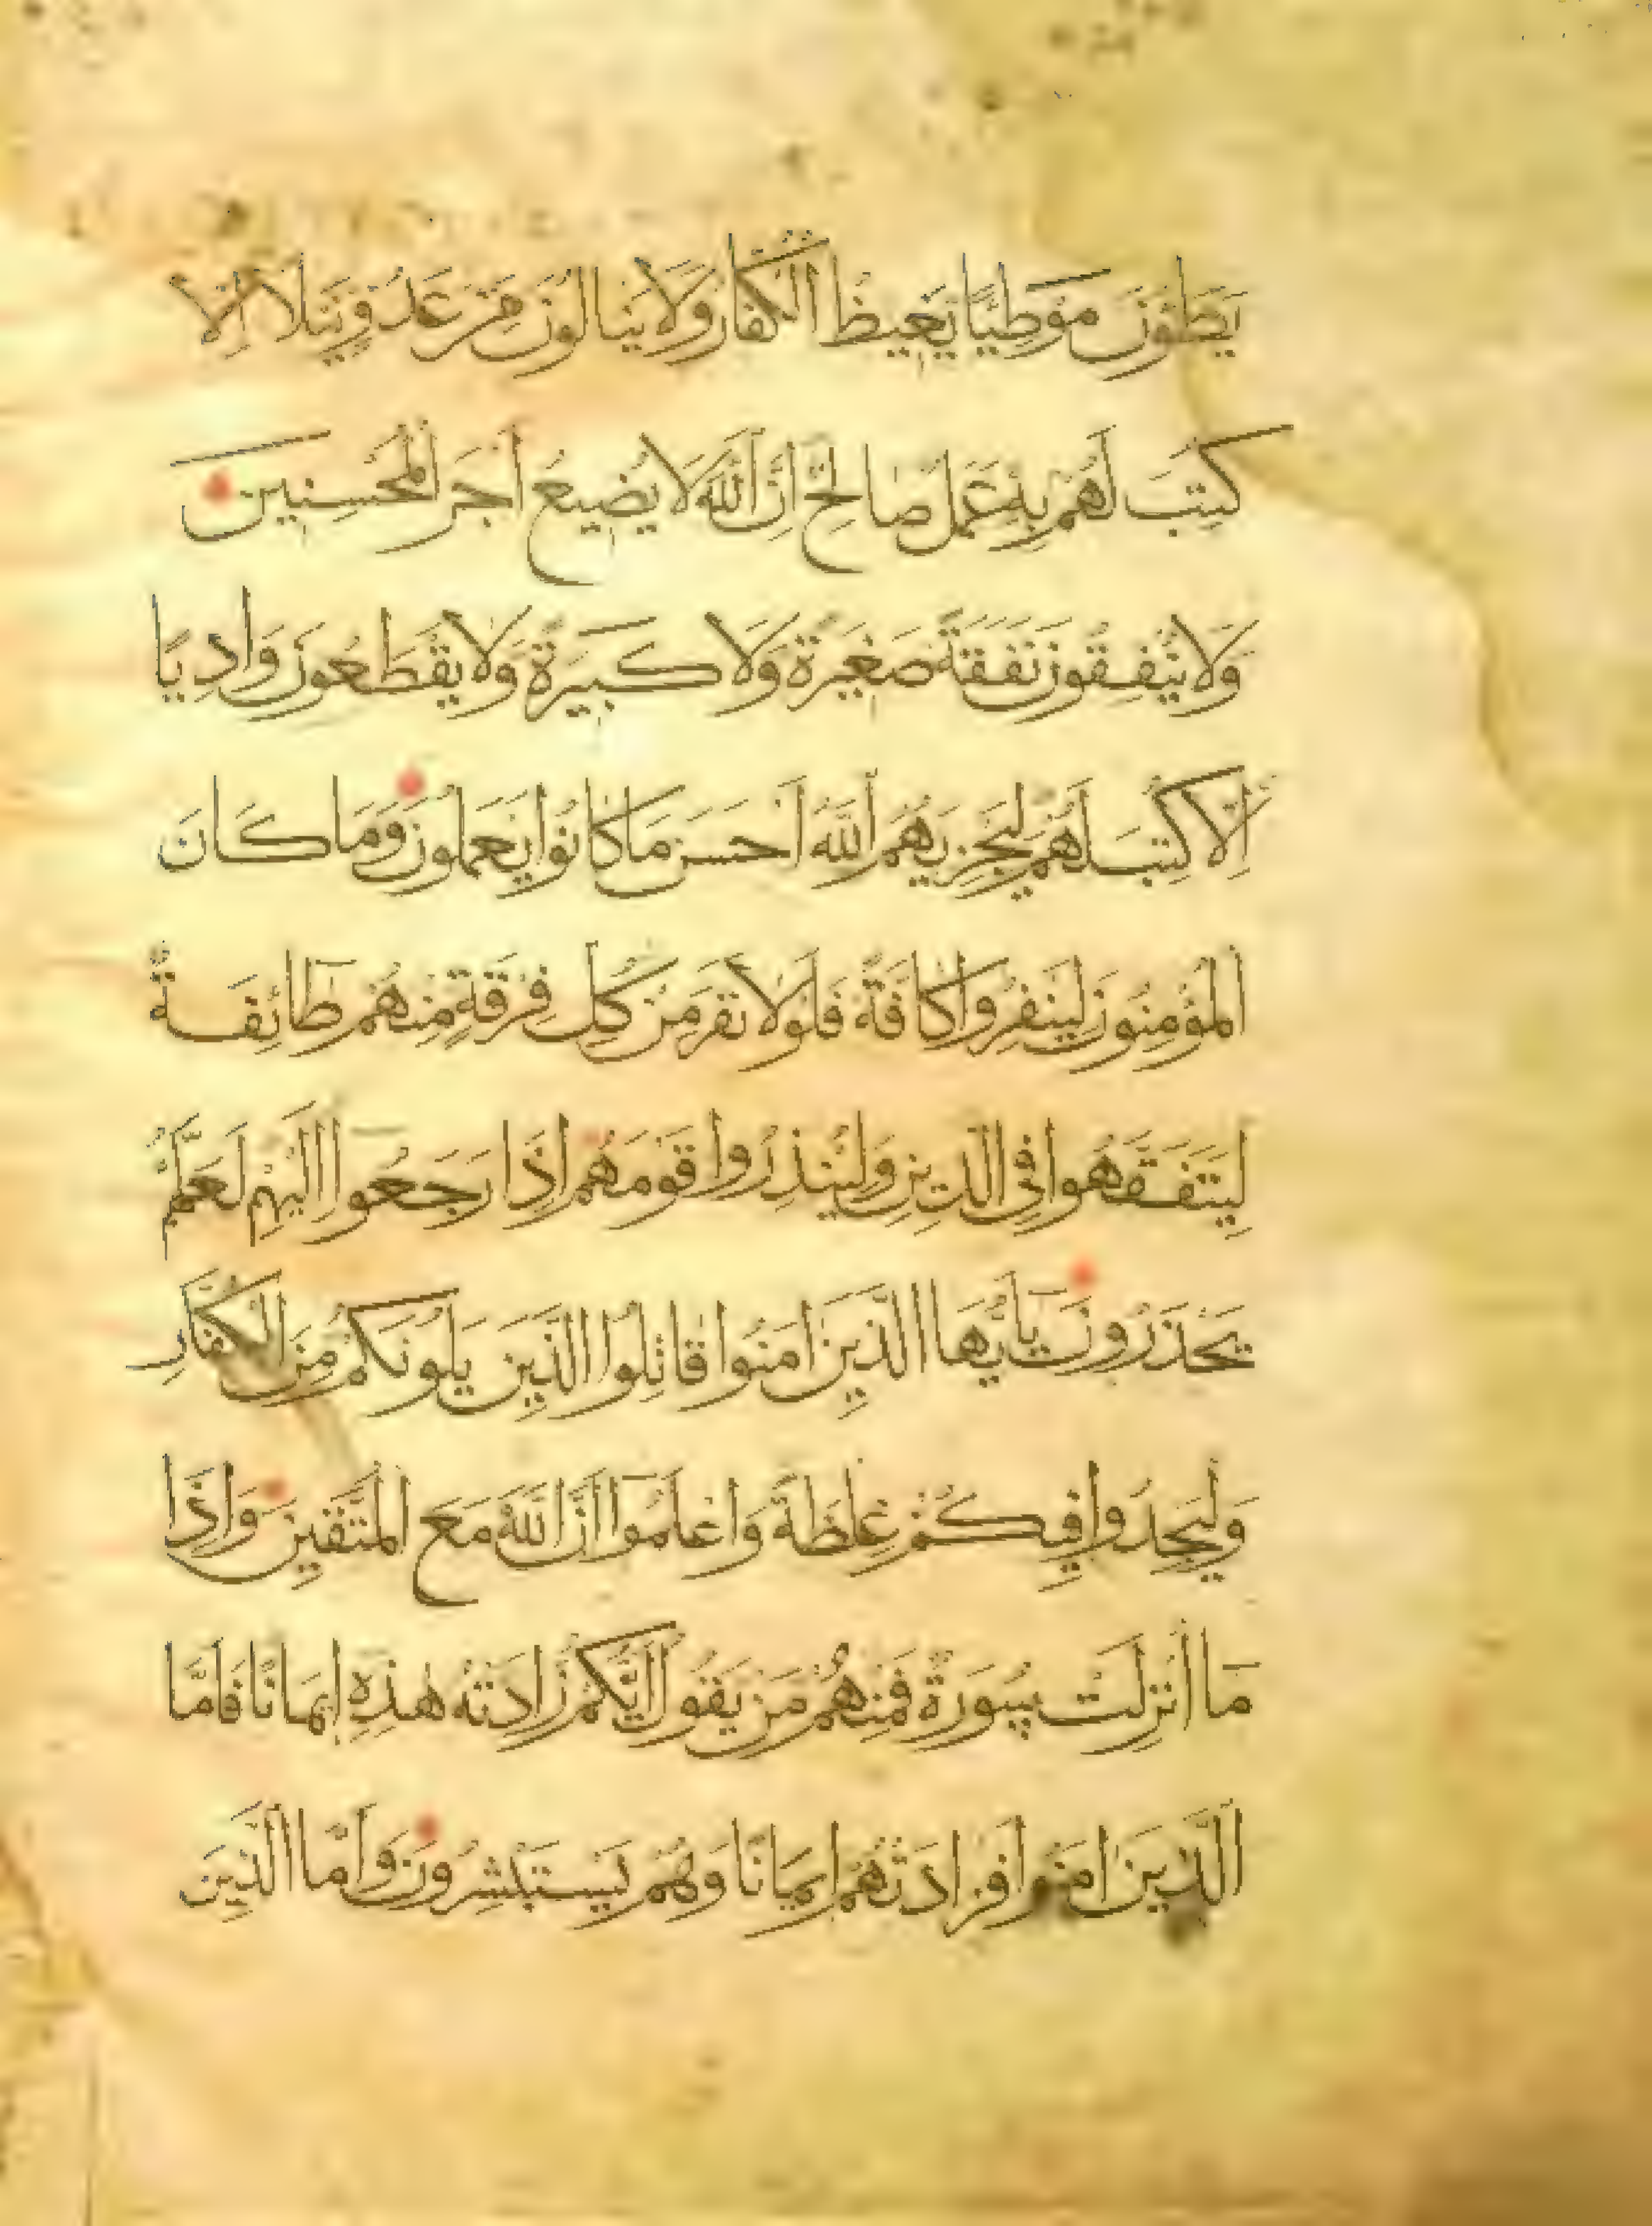 يَطَؤُنَ مَوْطِئًا يَغِيظُ الْكُفَّارَ وَلَا يَنَالُونَ مِنْ عَدُوٍّ نَيْلًا اِلَّا
كُتِبَ لَهُمْ بِهٖ عَمَلٌ صَالِحٌ اِنَّ اللّٰهَ لَا يُضِيعُ اَجْرَ الْمُحْسِنِينَ
وَلَا يُنْفِقُونَ نَفَقَةً صَغِيرَةً وَلَا كَبِيرَةً وَلَا يَقْطَعُونَ وَادِيًا
اِلَّا كُتِبَ لَهُمْ لِيَجْزِيَهُمُ اللّٰهُ اَحْسَنَ مَا كَانُوا يَعْمَلُونَ وَمَا كَانَ
الْمُؤْمِنُونَ لِيَنْفِرُوا كَافَّةً فَلَوْلَا نَفَرَ مِنْ كُلِّ فِرْقَةٍ مِنْهُمْ طَائِفَةٌ
لِيَتَفَقَّهُوا فِى الدِّينِ وَلِيُنْذِرُوا قَوْمَهُمْ اِذَا رَجَعُوا اِلَيْهِمْ لَعَلَّهُمْ
يَحْذَرُونَ يَا اَيُّهَا الَّذِينَ اٰمَنُوا قَاتِلُوا الَّذِينَ يَلُونَكُمْ مِنَ الْكُفَّارِ
وَلْيَجِدُوا فِيكُمْ غِلْظَةً وَاعْلَمُوا اَنَّ اللّٰهَ مَعَ الْمُتَّقِينَ وَاِذَا
مَا اُنْزِلَتْ سُورَةٌ فَمِنْهُمْ مَنْ يَقُولُ اَيُّكُمْ زَادَتْهُ هٰذِهٖ اِيمَانًا فَاَمَّا
الَّذِينَ اٰمَنُوا فَزَادَتْهُمْ اِيمَانًا وَهُمْ يَسْتَبْشِرُونَ وَاَمَّا الَّذِينَ